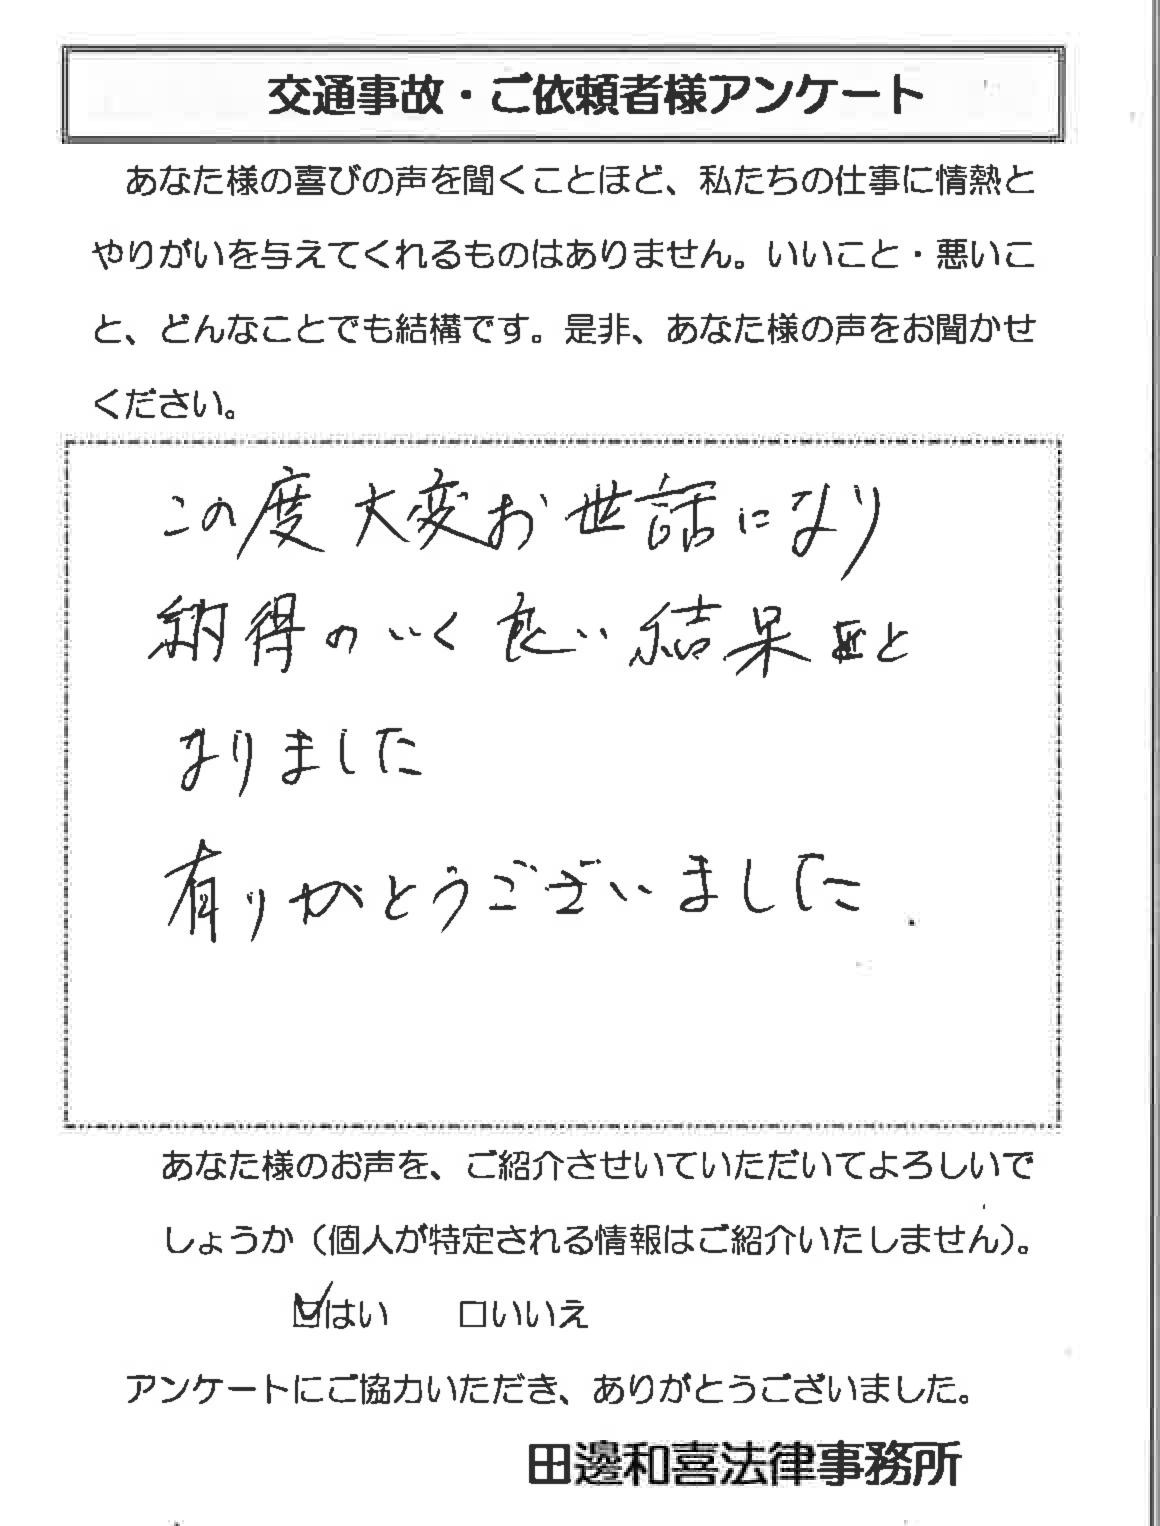 交通事故・ご依頼者様アンケート
あなた様の喜びの声を聞くことほど、私たちの仕事に情熱と
やりがいを与えてくれるものはありません。いいこと・悪いこ
と、どんなことでも結構です。是非、あなた様の声をお聞かせ
ください。
この度大変お世話になり
納得のいく良い結果と
なりました
有りがとうございました.
あなた様のお声を、ご紹介させいていただいてよろしいで
しょうか（個人が特定される情報はご紹介いたしません）。
☑はい　□いいえ
アンケートにご協力いただき、ありがとうございました。
田邊和喜法律事務所